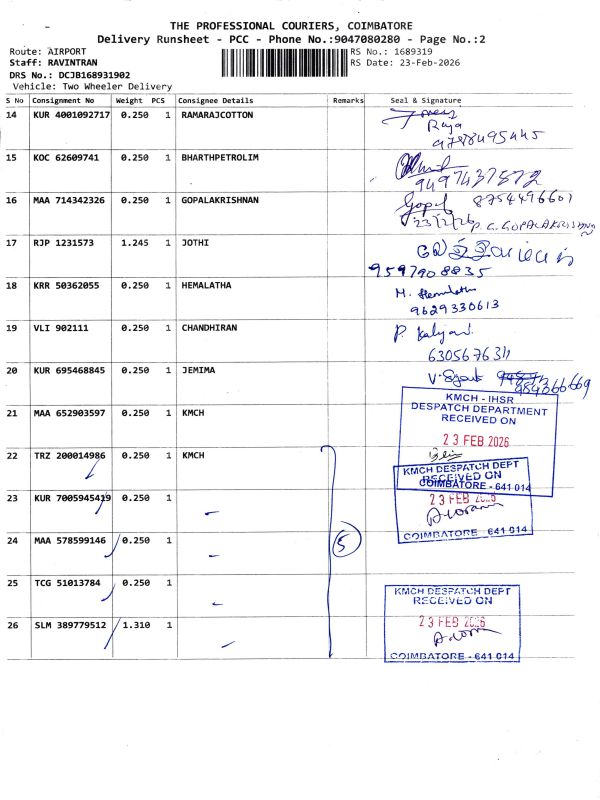 THE PROFESSIONAL COURIERS, COIMBATORE
Delivery Runsheet - PCC - Phone No.:9047080280 - Page No.:2
Route: AIRPORT RS No.: 1689319
Staff: RAVINTRAN RS Date: 23-Feb-2026
DRS No.: DCJB168931902
Vehicle: Two Wheeler Delivery
S No Consignment No Weight PCS Consignee Details Remarks Seal & Signature
14 KUR 4001092717 0.250 1 RAMARAJCOTTON
Raja
9788495445
15 KOC 62609741 0.250 1 BHARTHPETROLIM
9497437872
16 MAA 714342326 0.250 1 GOPALAKRISHNAN Gopal 8754496601
23/2/26 P.C. GOPALAKRISHNAN
17 RJP 1231573 1.245 1 JOTHI
9597908835
18 KRR 50362055 0.250 1 HEMALATHA M. Hemalatha
9629330613
19 VLI 902111 0.250 1 CHANDHIRAN P. Kalyani
20 KUR 695468845 0.250 1 JEMIMA
21 MAA 652903597 0.250 1 KMCH
KMCH - IHSR
DESPATCH DEPARTMENT
RECEIVED ON
23 FEB 2026
22 TRZ 200014986 0.250 1 KMCH
KMCH DESPATCH DEPT
RECEIVED ON
COIMBATORE - 641 014
23 KUR 7005945419 0.250 1
23 FEB 2026
24 MAA 578599146 0.250 1 5
COIMBATORE - 641 014
25 TCG 51013784 0.250 1
KMCH DESPATCH DEPT
RECEIVED ON
26 SLM 389779512 1.310 1
23 FEB 2026
COIMBATORE - 641 014